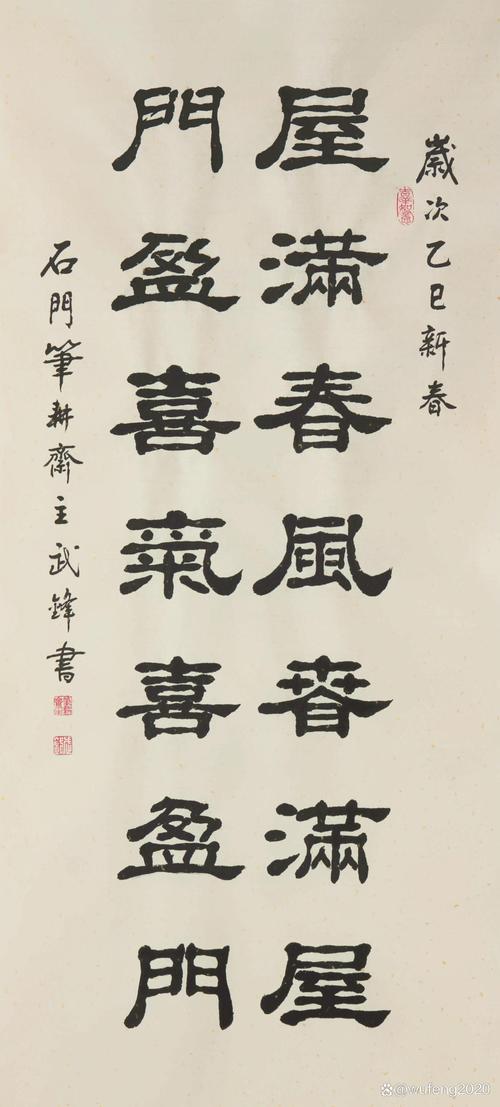 歲次乙巳新春
屋滿春風春滿屋
門盈喜氣喜盈門
石門筆耕齋主武鋒書
@wufeng2020